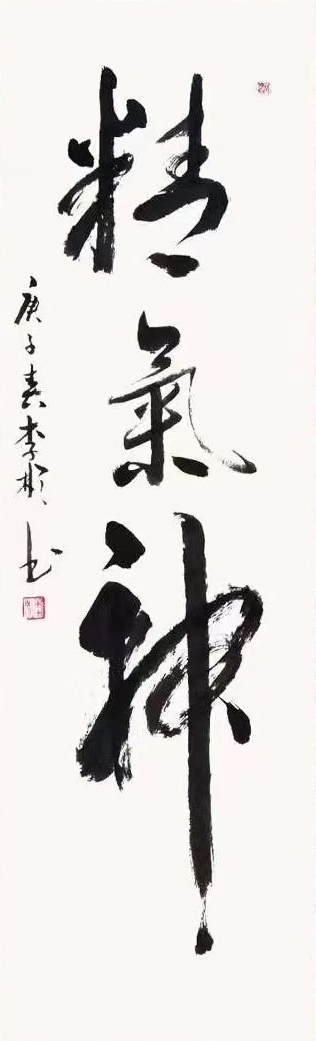 精氣神
庚子春李彬书